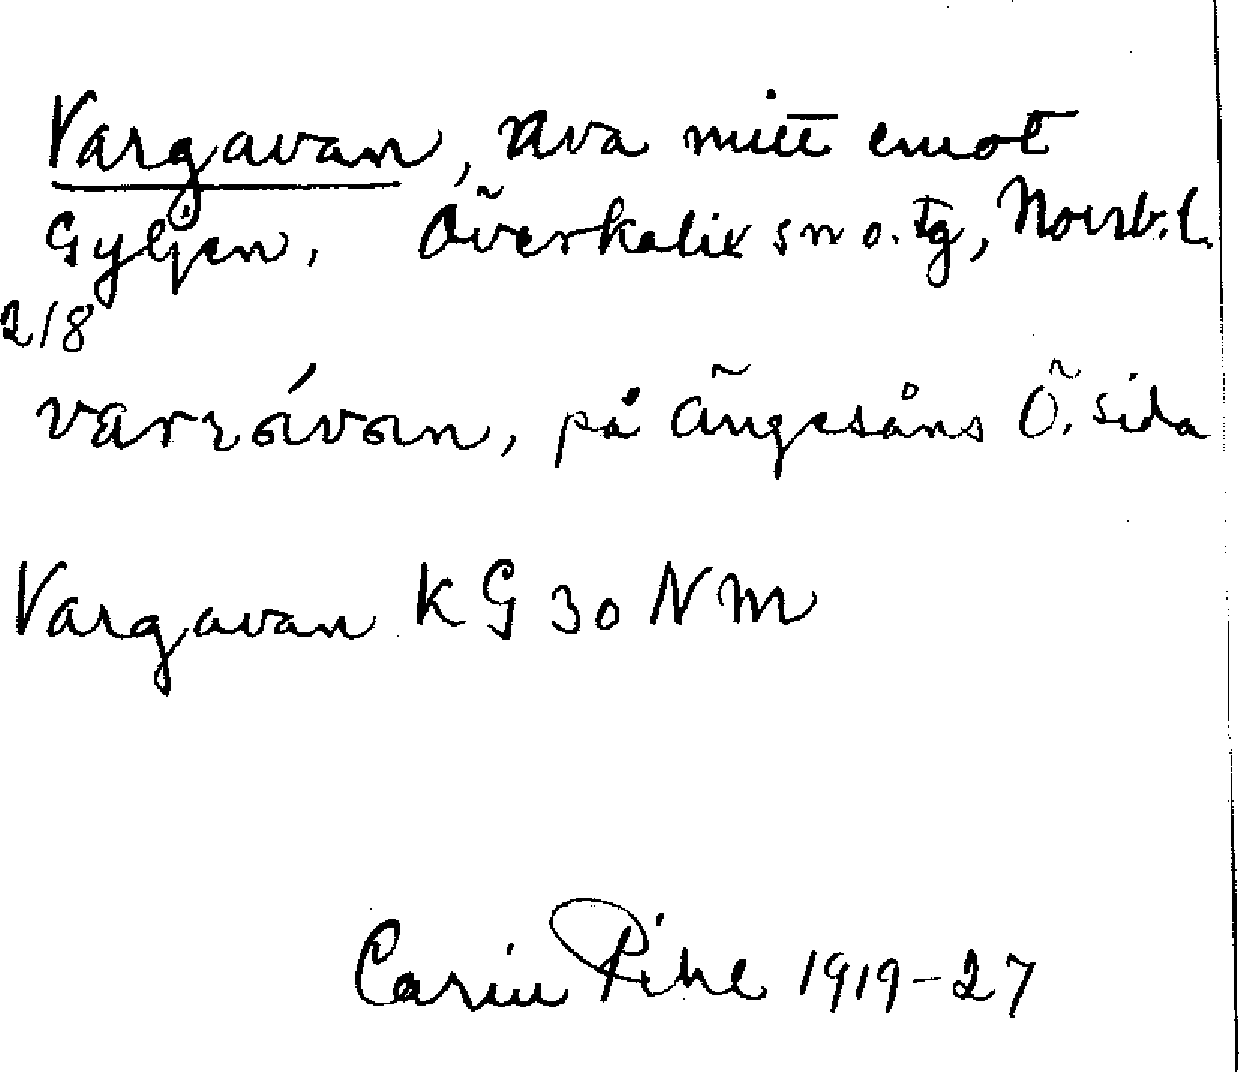 Vargavan, Ava mitt emot
Gyljen. Överkalix sn o. tg, Norrb. l.
2/8
varɿávan, på Ängesåns Ö. sida
Vargavan KG 30 NM
Carin Pihl 1919-27